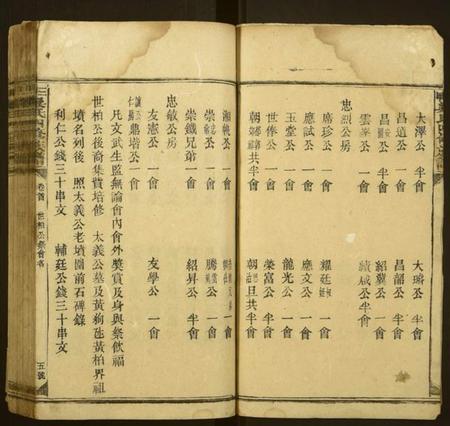 大澤公 半會 大璘公 半會
昌道公 一會 昌韶公 半會
昌 公 半會 紹冀公 半會
雲峯公 一會 公半會
忠烈公房
席珍公 一會 耀廷 一會
應試公 一會 應文公 半會
玉堂公 一會 龍光公 半會
世俸公 一會 榮富公 半會
朝 共半會 朝 旦共半會
湘 公 一會 一會
崇 公 一會 騰 公 一會
崇鐵兄弟一會 紹昇公 半會
忠敏公房
友憲公 一會 友學公 一會
仁 鼎塔公一會
凡文武生監無論會內會外奬賞及身與祭飲福
世柏公後裔集費培修 太義公墓及黃 黃柏界祖
墳名列後 照太義公老墳圖前石碑錄
利仁公錢三十串文 輔廷公錢三十串文
卷首 世柏公祭會名 五號